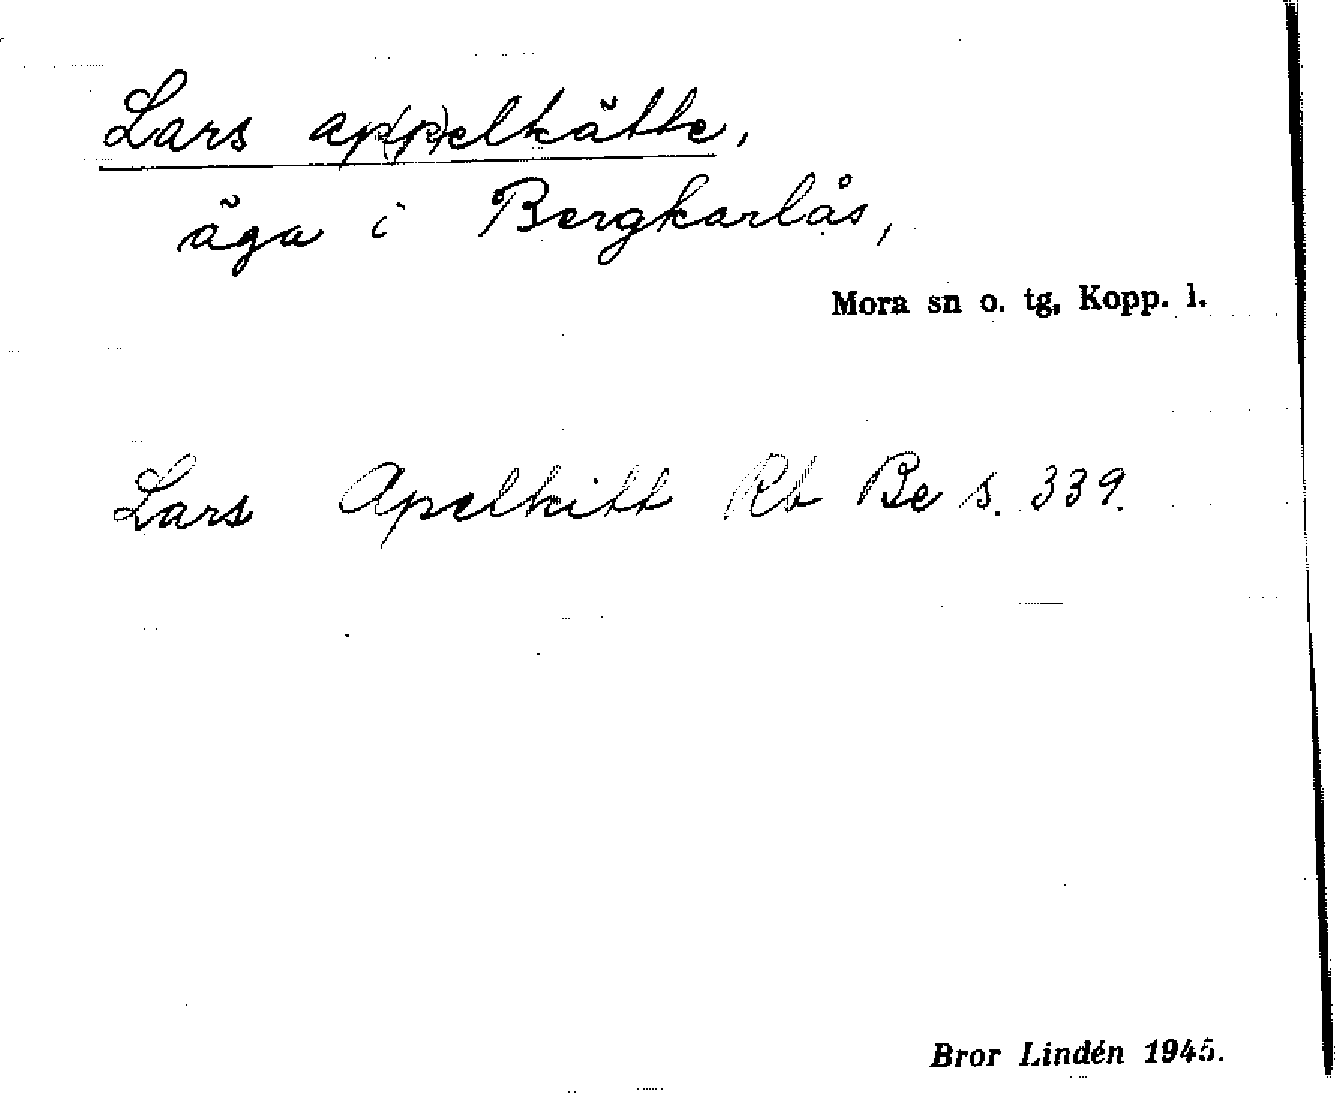 Lars ap(p)elkätte,
äga i Bergkarlås,
Mora sn o. tg, Kopp. l.
Lars Apelkitt Rb Be s. 339.
Bror Lindén 1945.